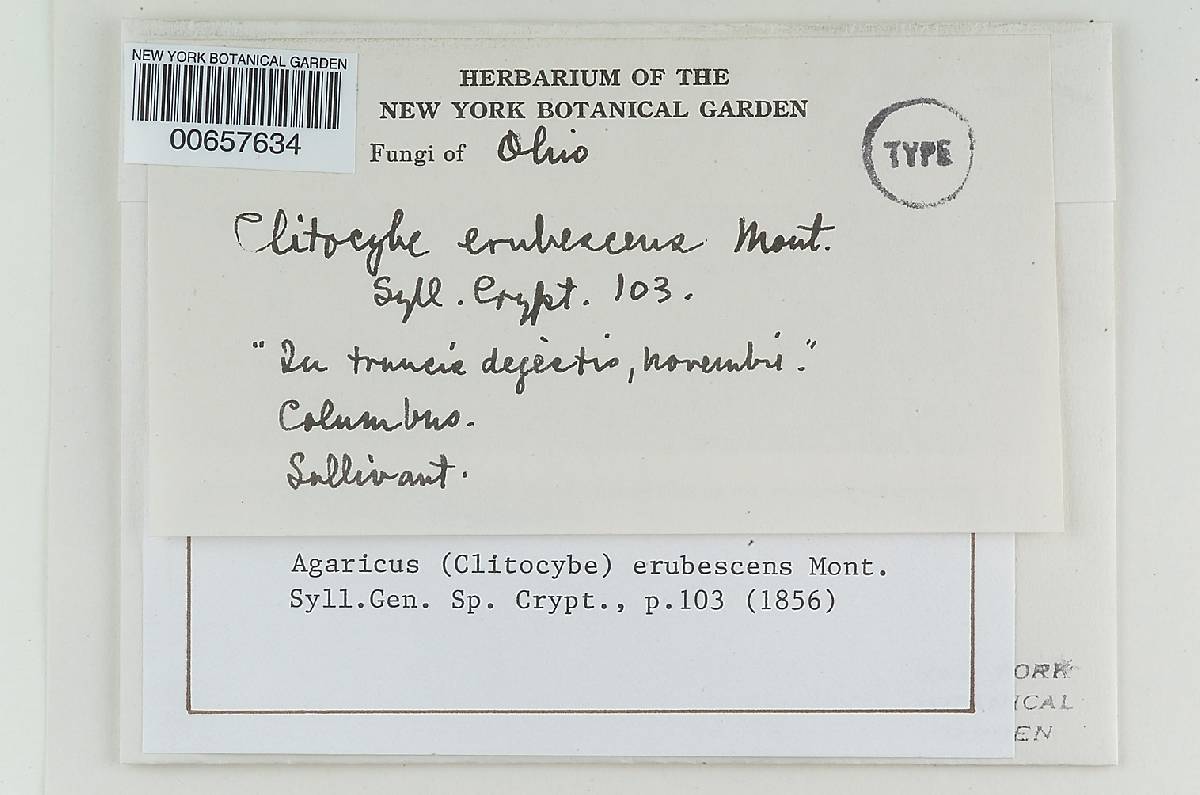 NEW YORK BOTANICAL GARDEN
00657634
HERBARIUM OF THE
NEW YORK BOTANICAL GARDEN
Fungi of Ohio
TYPE
Clitocybe erubescens Mont.
Syll. Crypt. 103.
"In truncis dejectis, novembri."
Columbus.
Sullivant.
Agaricus (Clitocybe) erubescens Mont.
Syll.Gen. Sp. Crypt., p.103 (1856)
ORK
ICAL
EN